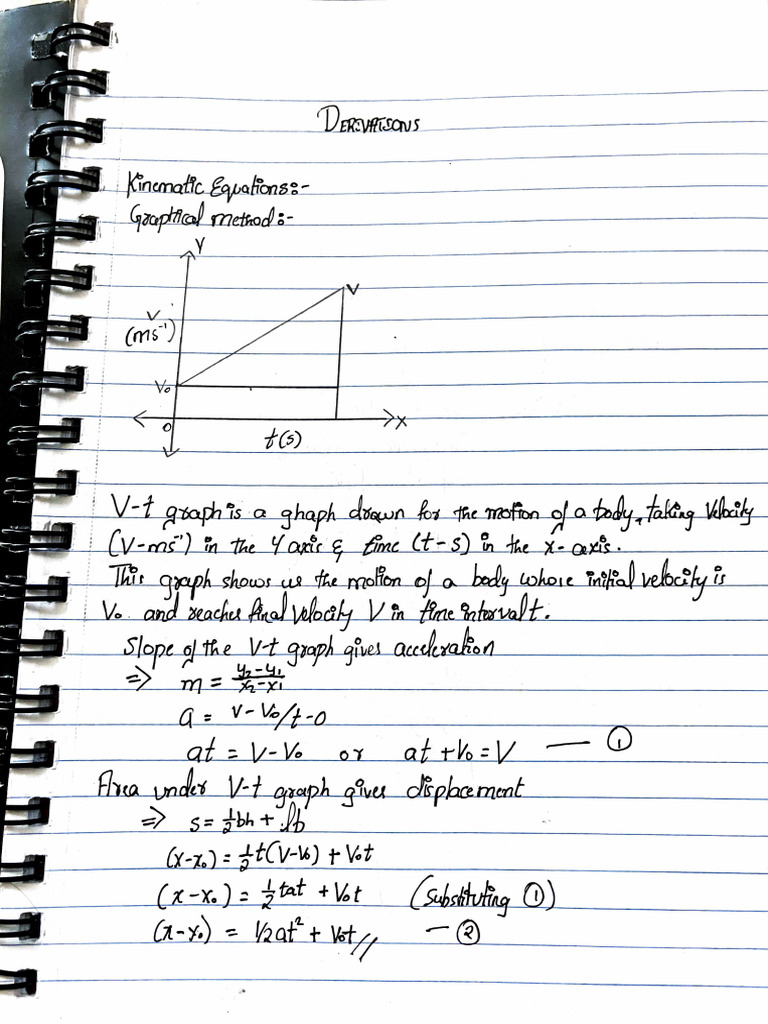 DERIVATISONS
Kinematic Equations:-
Graphical method:-
Y
V
V
(ms⁻¹)
V₀
O
X
t(s)
V-t graph is a ghaph drawn for the motion of a body, taking Velocity
(V-ms⁻¹) in the Y axis & time (t-s) in the x-axis.
This graph shows us the motion of a body whose initial velocity is
V₀ and reaches final velocity V in time interval t.
Slope of the V-t graph gives acceleration
=> m = y₂-y₁/x₂-x₁
a = v-V₀/t-0
at = V-V₀ or at + V₀ = V — ①
Area under V-t graph gives displacement
=> s = ½bh + lb
(x-x₀) = ½t(V-V₀) + V₀t
(x-x₀) = ½tat + V₀t (Substituting ①)
(x-x₀) = 1/2at² + V₀t// — ②